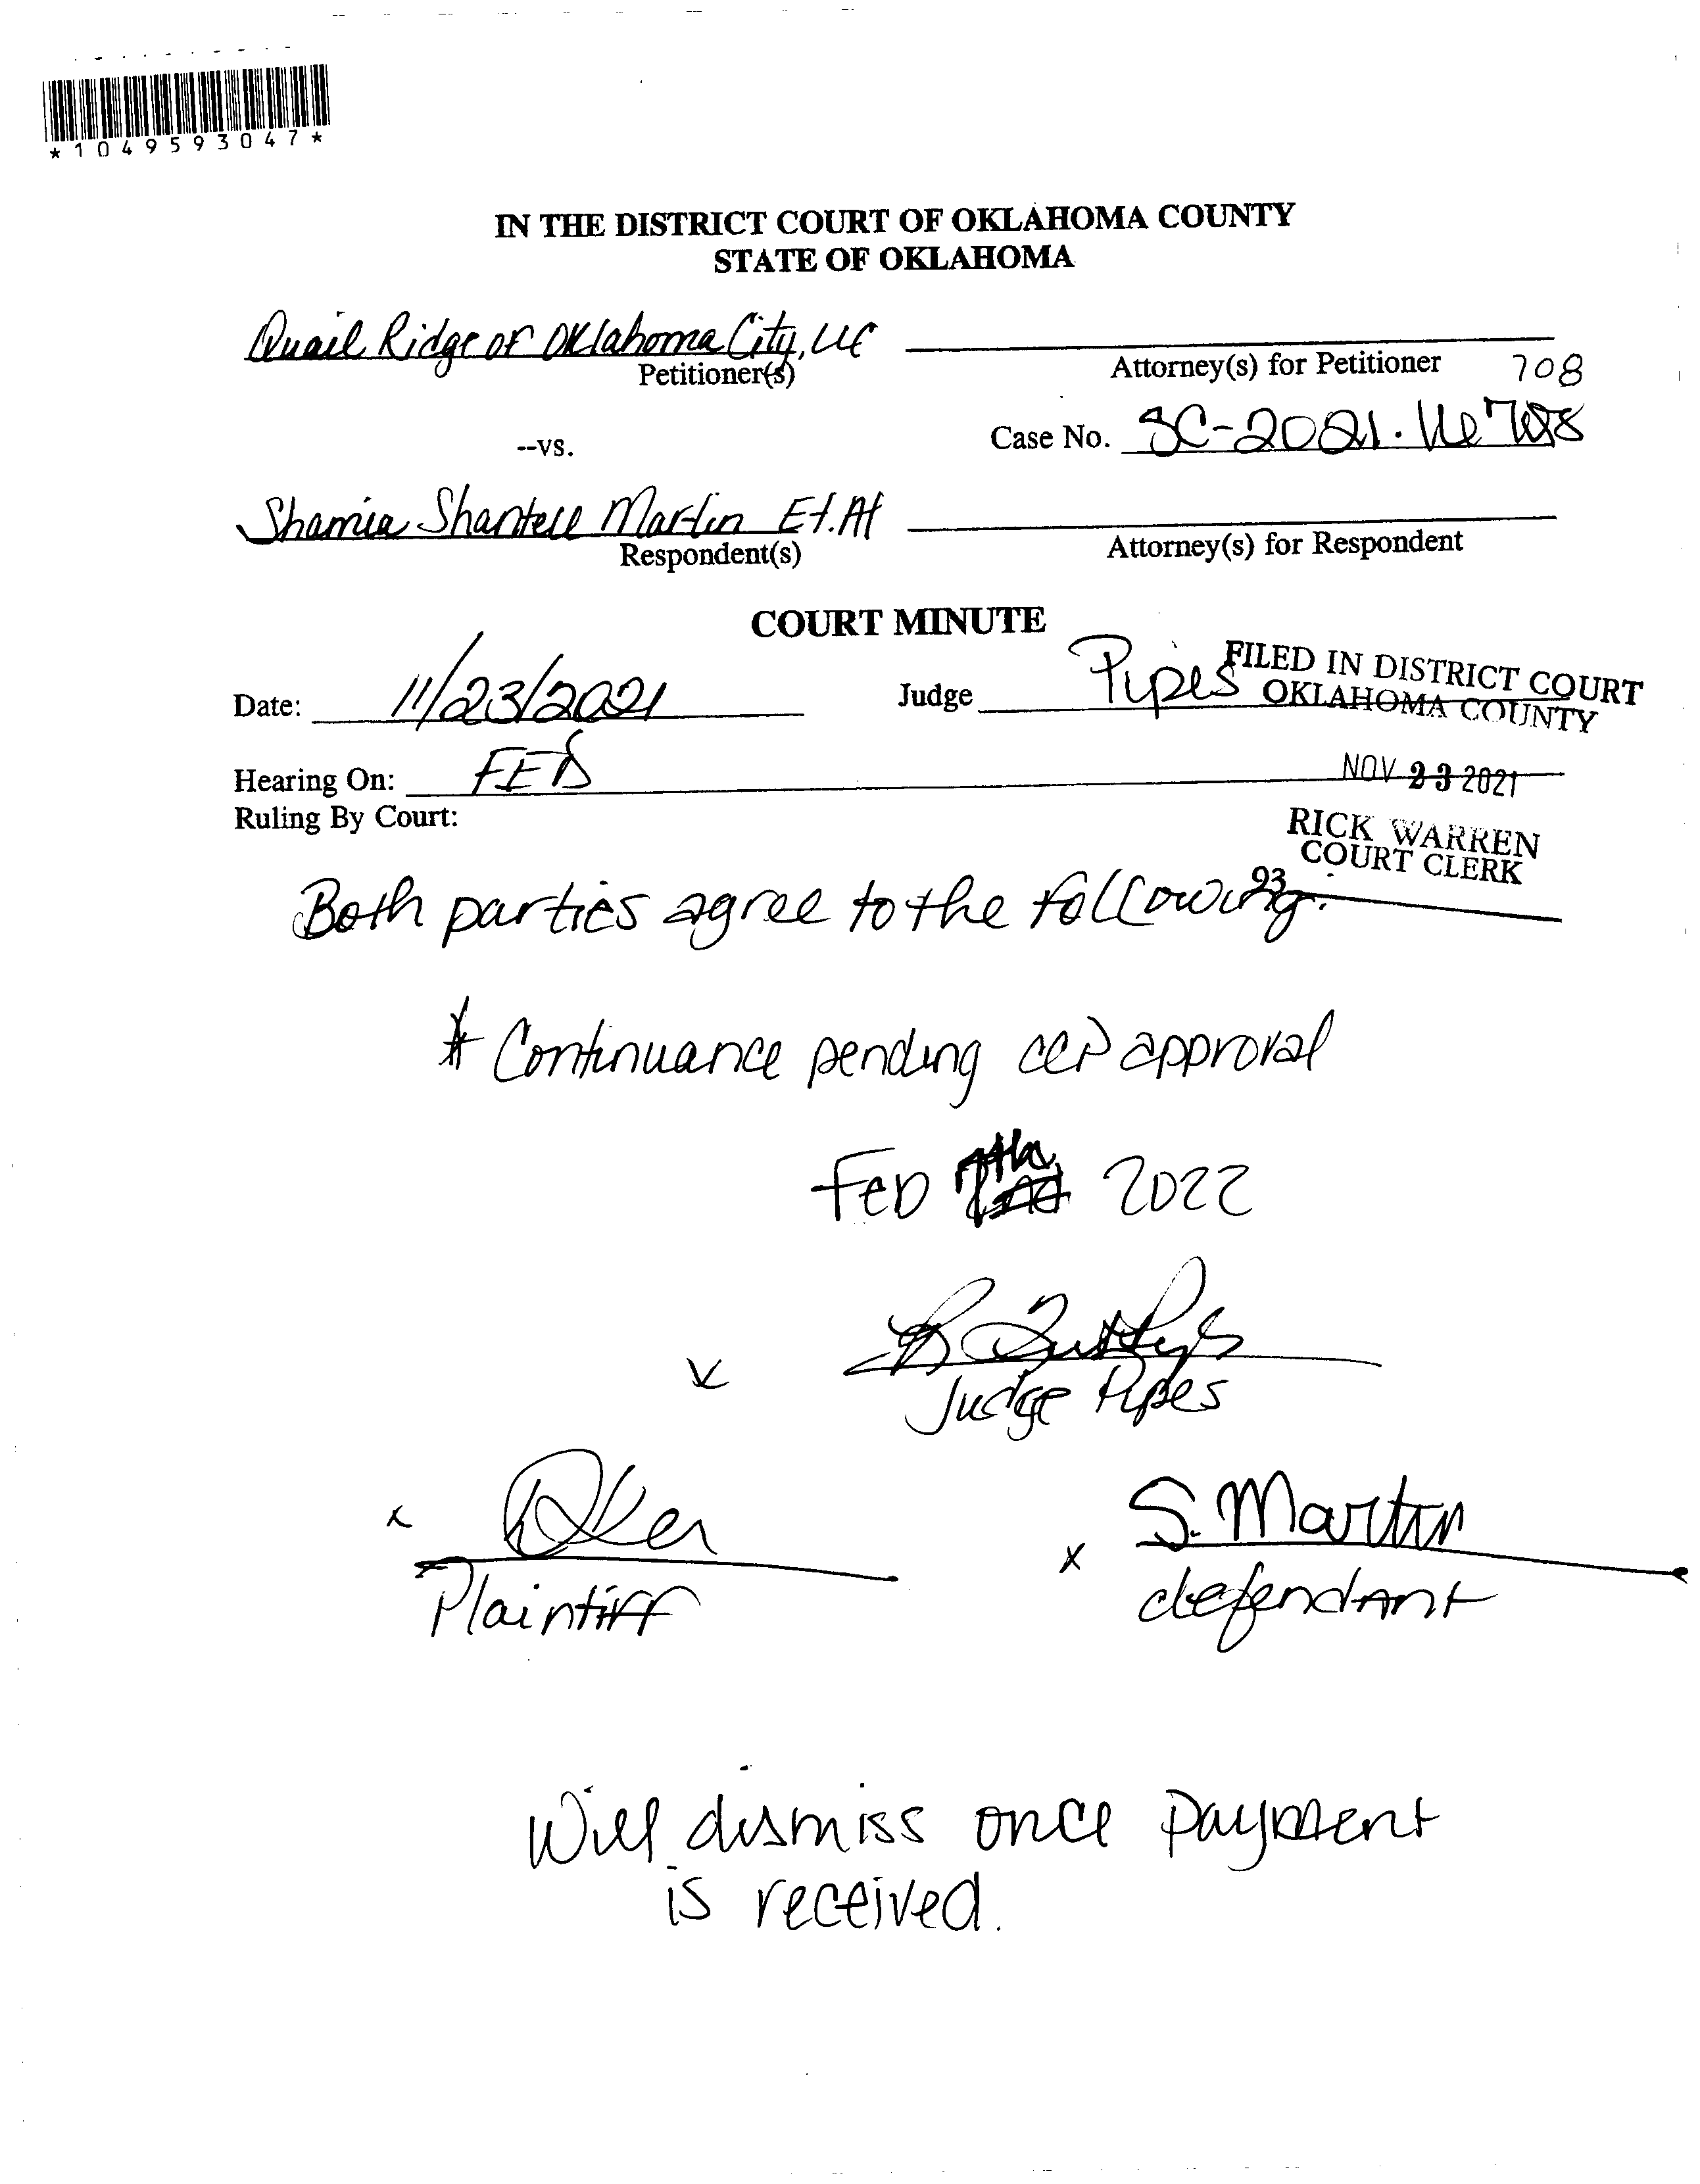 *1049593047*
IN THE DISTRICT COURT OF OKLAHOMA COUNTY
STATE OF OKLAHOMA
Quail Ridge of Oklahoma City, LLC
Petitioner(s)
Attorney(s) for Petitioner
708
--vs.
Case No. SC-2021-16
Shamia Shantell Martin Et. Al
Respondent(s)
Attorney(s) for Respondent
COURT MINUTE
Date: 11/23/2021
Judge Pipes
FILED IN DISTRICT COURT
OKLAHOMA COUNTY
Hearing On: FED
NOV 23 2021
Ruling By Court:
RICK WARREN
COURT CLERK
93
Both parties agree to the following:
* Continuance pending CCP approval
Feb 7th 2022
Judge Pipes
x
x
x S. Martin
Plaintiff
defendant
Will dismiss once payment
is received.